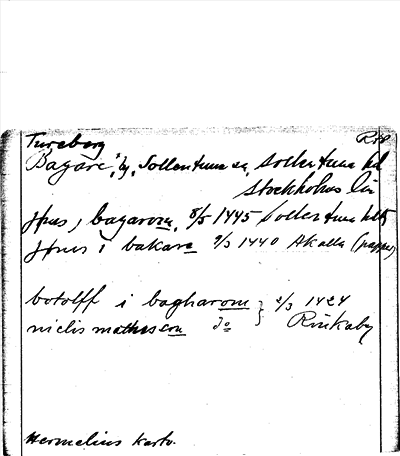 Tureberg
Bagare, by, Sollentuna sn, Sollentuna hd
Stockholms län
Jjnes j bagarom, 8/5 1445 Sollentuna
Jjnes i bakara 9/3 1440 Akalla (papper)
botolff i bagharom } 2/3 1424
nielis do Rinkaby
Hermelins karta.